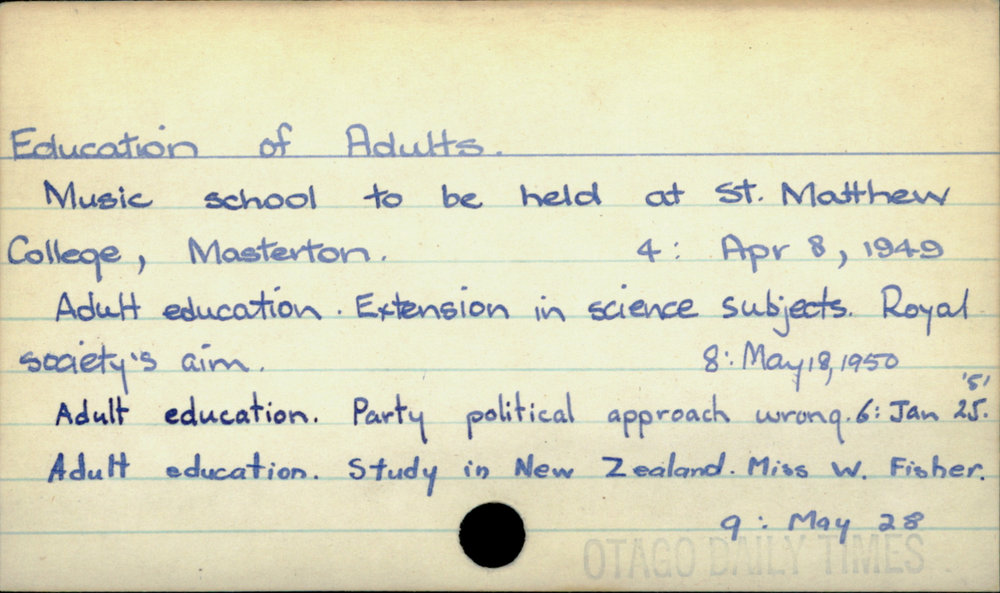 Education of Adults.
Music school to be held at St. Matthew
College, Masterton. 4: Apr 8, 1949
Adult education. Extension in science subjects. Royal
society's aim. 8: May 18, 1950
'51
Adult education. Party political approach wrong. 6: Jan 25.
Adult education. Study in New Zealand. Miss W. Fisher.
9: May 28
OTAGO DAILY TIMES